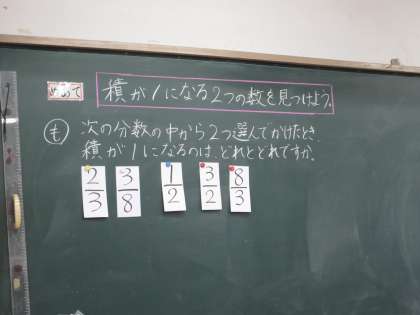 めあて 積が1になる2つの数を見つけよう。
も 次の分数の中から2つ選んでかけたとき、
積が1になるのは、どれとどれですか。
2/3 3/8 1/2 3/2 8/3